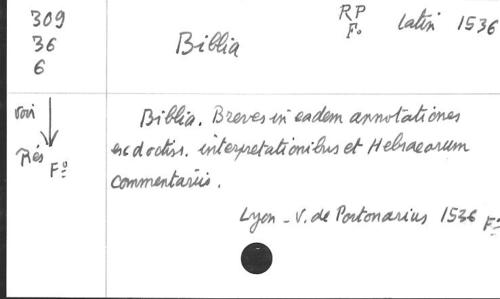 309
36
6
Biblia
RP
Fo
Latin 1536
voir
Rés
Fo
Biblia. Breves in eadem annotationes
ex doctiss. interpretationibus et Hebraeorum
commentariis.
Lyon - V. de Portonarius 1536 Fo